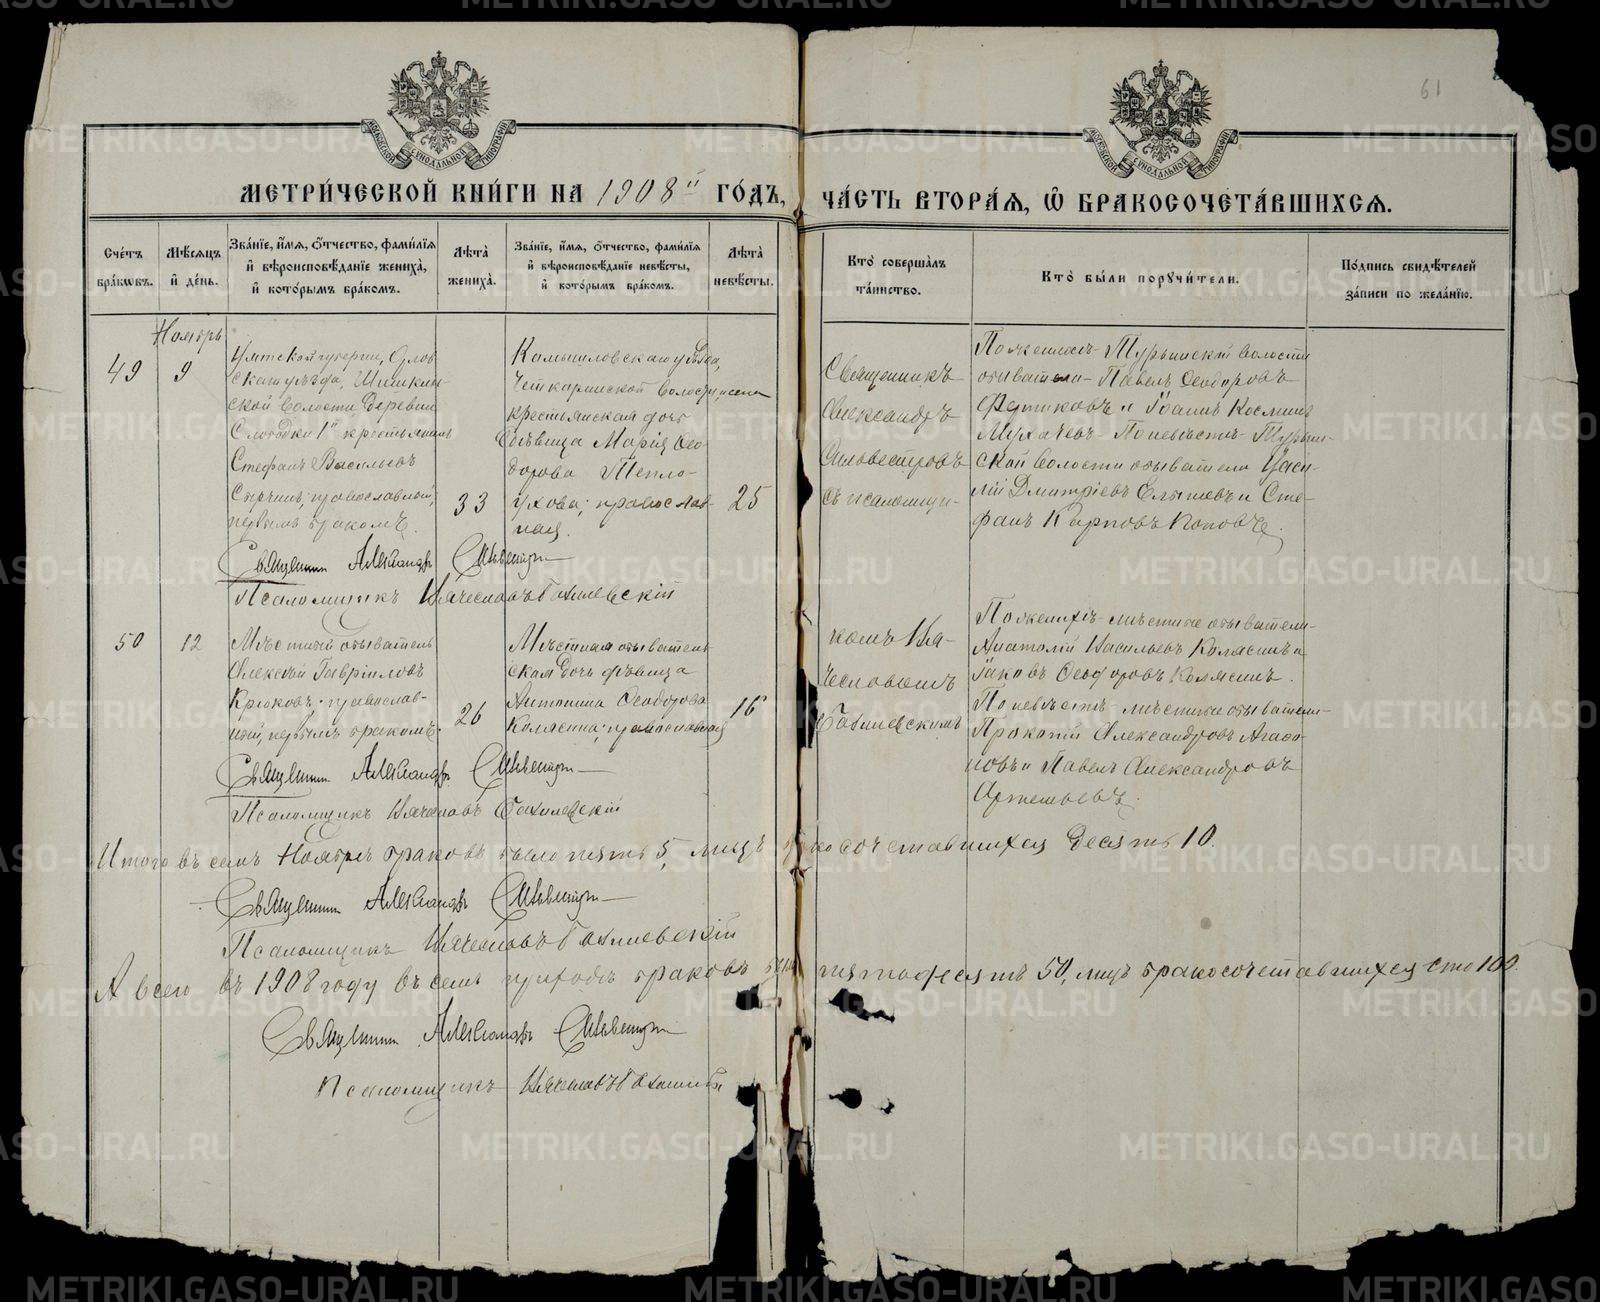 61
МОСКОВСКОЙ СѴНОДАЛЬНОЙ ТИПОГРАФІИ
МОСКОВСКОЙ СѴНОДАЛЬНОЙ ТИПОГРАФІИ
МЕТРИ́ЧЕСКОЙ КНИ́ГИ НА 1908й ГО́ДЪ, ЧА́СТЬ ВТОРА́Я, Ѽ БРАКОСОЧЕТА́ВШИХСЯ.
Сче́тъ бра́кѡвъ.
Мѣ́сяцъ и҆ де́нь.
Зва́нїе, и҆́мя, ѻ҆́тчество, фами́лїя и҆ вѣроисповѣ́данїе жениха̀, и҆ кото́рымъ бра́комъ.
Лѣ́та жениха̀.
Зва́нїе, и҆́мя, ѻ҆́тчество, фами́лїя и҆ вѣроисповѣ́данїе невѣ́сты, и҆ кото́рымъ бра́комъ.
Лѣ́та невѣ́сты.
Кто̀ соверша́лъ та́инство.
Кто̀ бы́ли порꙋчи́тели.
По́дпись свидѣ́телей за́писи по жела́нїю.
Ноябрь
49
9
Вятской губерніи, Орлов
скаго уѣзда, Шишкин-
ской волости деревни
Слободки 1й крестьянинъ
Стефанъ Васильевъ
православный,
первымъ бракомъ.
33
Камышловскаго уѣзда,
Четкаринской волости, села
крестьянская дочь
дѣвица Марія Ѳео-
дорова Тепло-
ухова; православ-
ная.
25
Священникъ
Александръ
Сильвестровъ
съ псаломщи-
По женихѣ - Турьинской волости
обыватели - Павелъ Ѳеодоровъ
и Іоаннъ Косминъ
Мухачевъ - По невѣстѣ - Турьин-
ской волости обыватели Васи-
лій Дмитріевъ и Сте-
фанъ Карповъ Поповъ.
Священникъ Александръ Сильвестровъ
Псаломщикъ Вячеславъ
50
12
Мѣстный обыватель
Алексѣй Гавріиловъ
Крюковъ, православ-
ный, первымъ бракомъ.
26
Мѣстная обыватель-
ская дочь дѣвица
Антонина Ѳеодорова
Колясина; православная
16
комъ Вя-
чеславомъ
По женихѣ - мѣстные обыватели
Анатолій Васильевъ Колясинъ и
Іаковъ Ѳеодоровъ Колясинъ.
По невѣстѣ - мѣстные обыватели -
Прокопій Александровъ Агафо-
новъ и Павелъ Александровъ
Артемьевъ.
Священникъ Александръ Сильвестровъ
Псаломщикъ Вячеславъ
Итого въ семъ Ноябрѣ браковъ было пять 5, лицъ бракосочетавшихся десять 10.
Священникъ Александръ Сильвестровъ
Псаломщикъ Вячеславъ
А всего въ 1908 году въ семъ приходѣ браковъ было пятьдесятъ 50, лицъ бракосочетавшихся сто 100.
Священникъ Александръ Сильвестровъ
Псаломщикъ Вячеславъ
METRIKI.GASO-URAL.RU